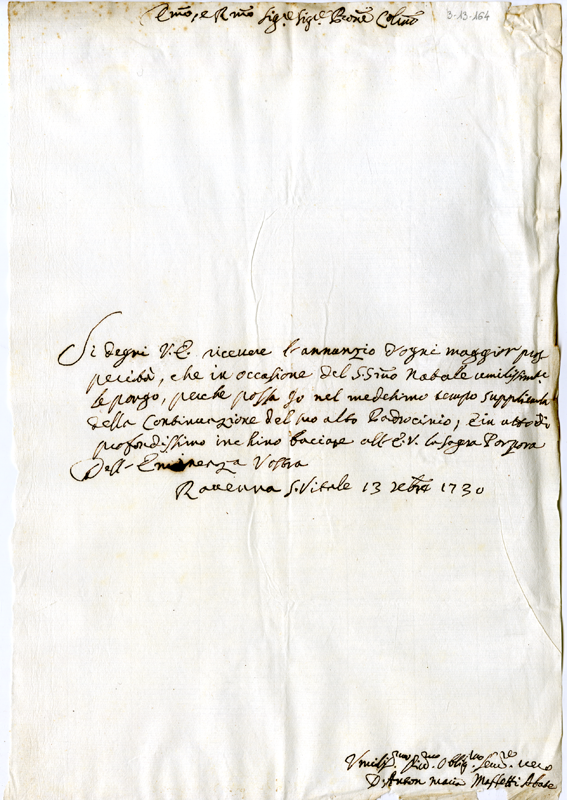 Emo, e Rmo Sig.r Sig.r Prone Colmo
3-13-164
Si degni V.E. ricevere l'annunzio d'ogni maggior pros
perità, che in occasione del SSmo Natale umilissimte
le porgo, perche possa Io nel medesimo tempo supplicarla
della Continuazione del suo alto Padrocinio, e in atto di
profondissimo inchino baciare all'E.V. la Sagra Porpora
Dell'Eminenza Vostra
Ravenna S. Vitale 13 Xbre 1730
Umiliss.mo Oblig.mo Serv.re vero
D. Anton Maria Maffetti Abate